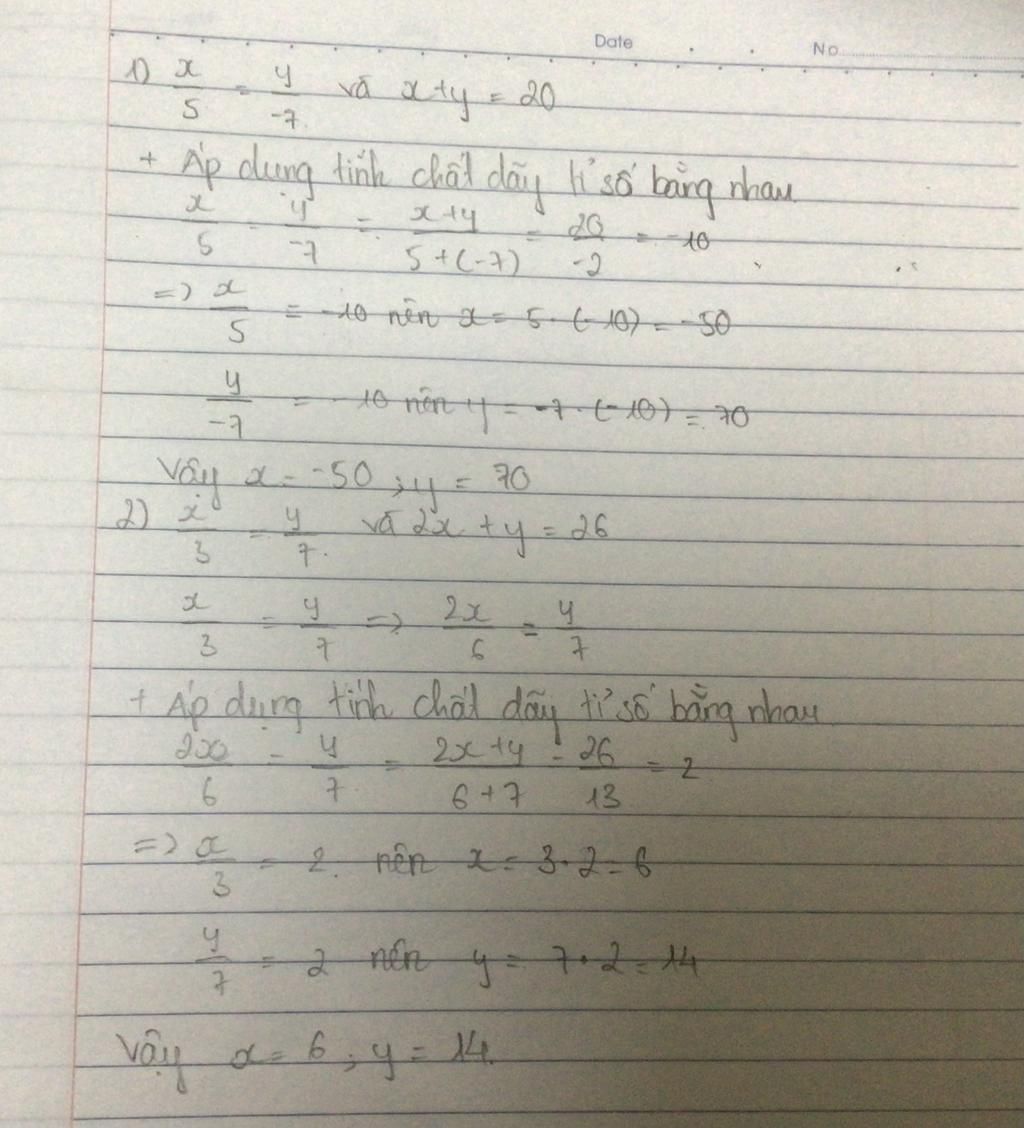 Date No
1) x/5 = y/-7 và x+y = 20
+ Áp dụng tính chất dãy tỉ số bằng nhau
x/5 = y/-7 = x+y/5+(-7) = 20/-2 = -10
=> x/5 = -10 nên x = 5 . (-10) = -50
y/-7 = -10 nên y = -7 . (-10) = 70
Vậy x = -50 ; y = 70
2) x/3 = y/7 và 2x + y = 26
x/3 = y/7 => 2x/6 = y/7
+ Áp dụng tính chất dãy tỉ số bằng nhau
2x/6 = y/7 = 2x+y/6+7 = 26/13 = 2
=> x/3 = 2 nên x = 3 . 2 = 6
y/7 = 2 nên y = 7 . 2 = 14
Vậy x = 6 ; y = 14.